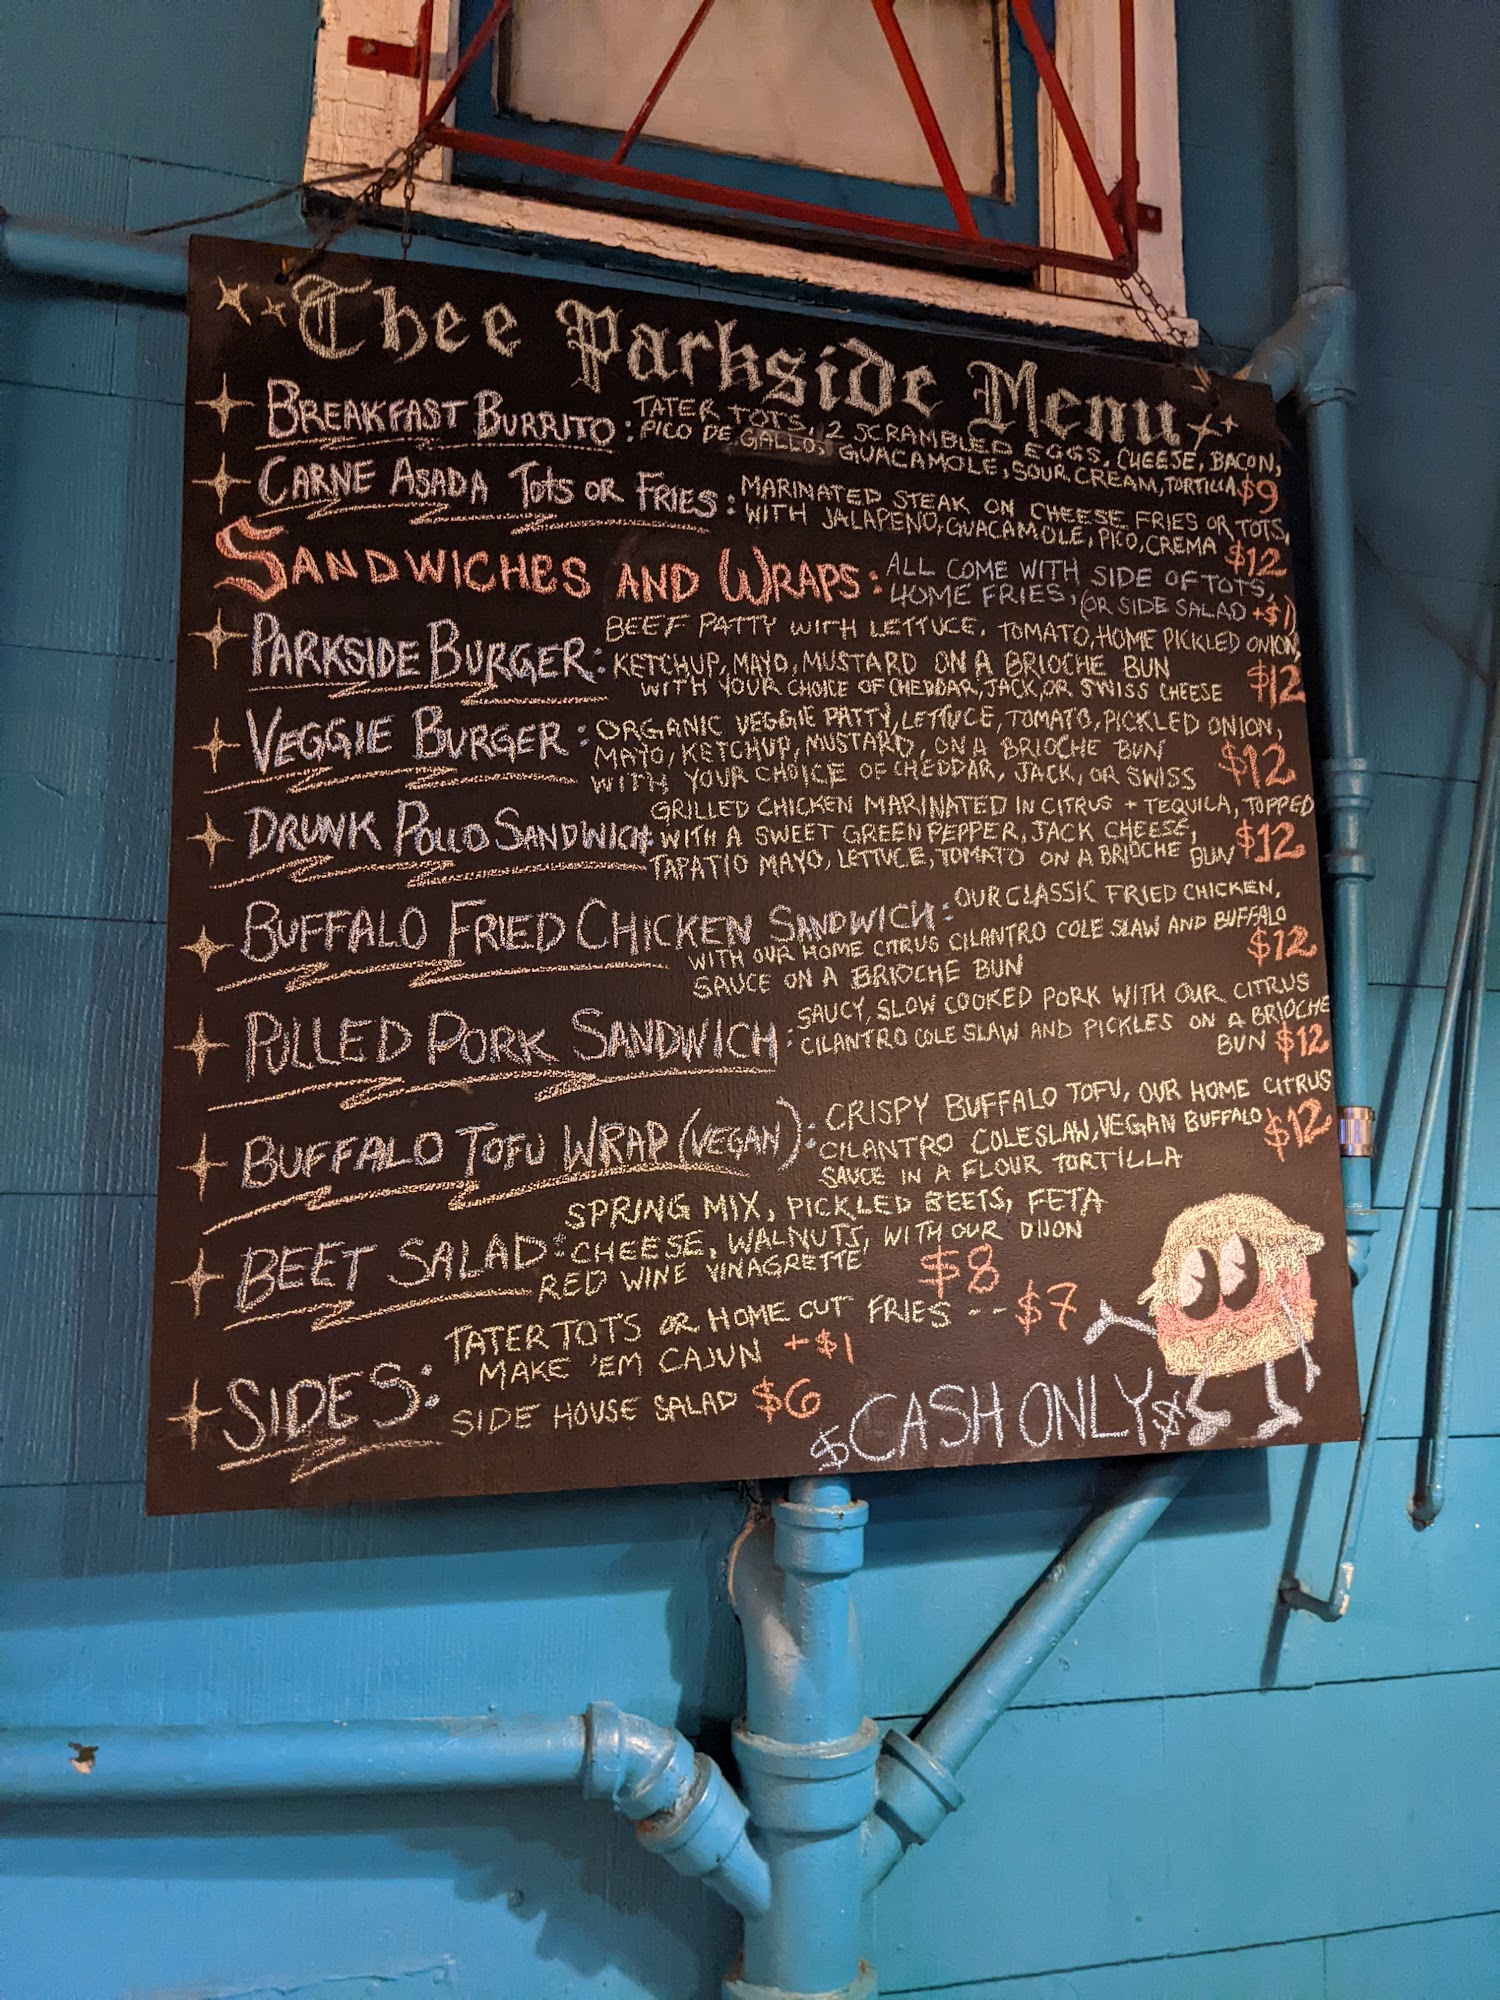 Thee Parkside Menu
BREAKFAST BURRITO: TATER TOTS, 2 SCRAMBLED EGGS, CHEESE, BACON,
PICO DE GALLO, GUACAMOLE, SOUR CREAM, TORTILLA $9
CARNE ASADA TOTS OR FRIES: MARINATED STEAK ON CHEESE FRIES OR TOTS,
WITH JALAPENO, GUACAMOLE, PICO, CREMA $12
SANDWICHES AND WRAPS: ALL COME WITH SIDE OF TOTS,
HOME FRIES, (OR SIDE SALAD +$1)
PARKSIDE BURGER: BEEF PATTY WITH LETTUCE, TOMATO, HOME PICKLED ONION,
KETCHUP, MAYO, MUSTARD ON A BRIOCHE BUN
WITH YOUR CHOICE OF CHEDDAR, JACK, OR SWISS CHEESE $12
VEGGIE BURGER: ORGANIC VEGGIE PATTY, LETTUCE, TOMATO, PICKLED ONION,
MAYO, KETCHUP, MUSTARD, ON A BRIOCHE BUN
WITH YOUR CHOICE OF CHEDDAR, JACK, OR SWISS $12
DRUNK POLLO SANDWICH: GRILLED CHICKEN MARINATED IN CITRUS + TEQUILA, TOPPED
WITH A SWEET GREEN PEPPER, JACK CHEESE,
TAPATIO MAYO, LETTUCE, TOMATO ON A BRIOCHE BUN $12
BUFFALO FRIED CHICKEN SANDWICH: OUR CLASSIC FRIED CHICKEN,
WITH OUR HOME CITRUS CILANTRO COLE SLAW AND BUFFALO
SAUCE ON A BRIOCHE BUN $12
PULLED PORK SANDWICH: SAUCY, SLOW COOKED PORK WITH OUR CITRUS
CILANTRO COLE SLAW AND PICKLES ON A BRIOCHE
BUN $12
BUFFALO TOFU WRAP (VEGAN): CRISPY BUFFALO TOFU, OUR HOME CITRUS
CILANTRO COLESLAW, VEGAN BUFFALO $12
SAUCE IN A FLOUR TORTILLA
BEET SALAD: SPRING MIX, PICKLED BEETS, FETA
CHEESE, WALNUTS, WITH OUR DIJON
RED WINE VINAGRETTE $8
SIDES: TATER TOTS OR HOME CUT FRIES -- $7
MAKE 'EM CAJUN +$1
SIDE HOUSE SALAD $6
$CASH ONLY$